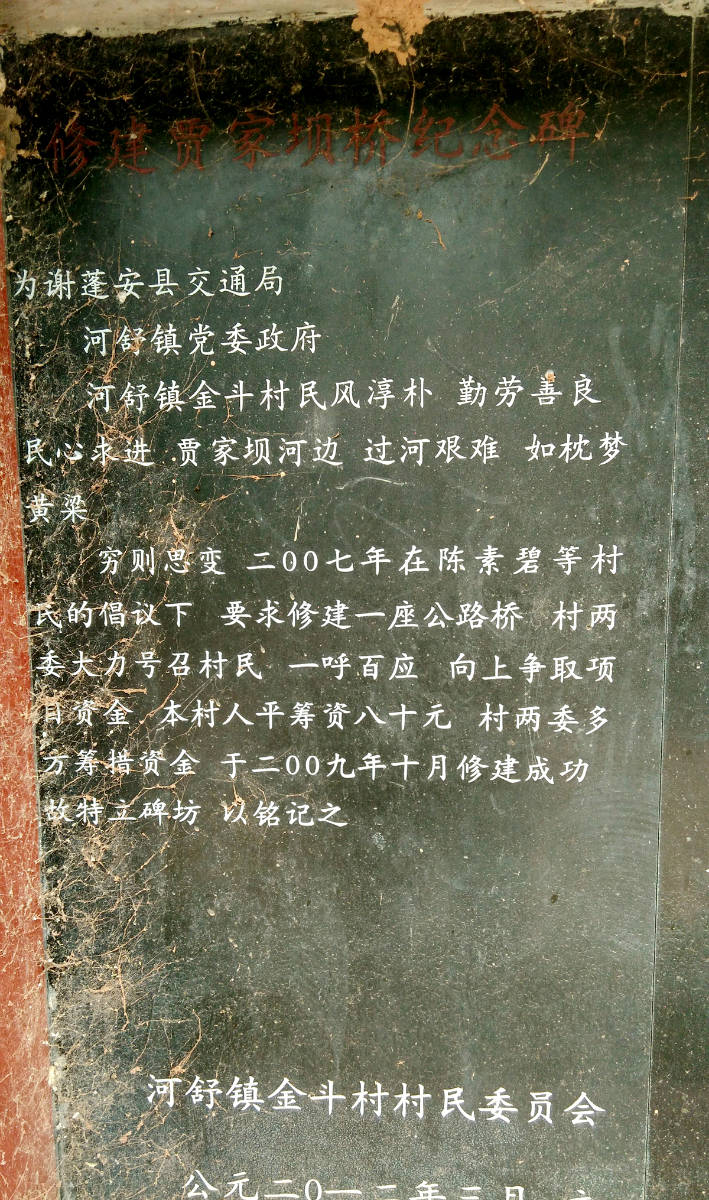 修建贾家坝桥纪念碑
为谢蓬安县交通局
河舒镇党委政府
河舒镇金斗村民风淳朴 勤劳善良
民心求进 贾家坝河边 过河艰难 如枕梦
黄粱
穷则思变 二00七年在陈素碧等村
民的倡议下 要求修建一座公路桥 村两
委大力号召村民 一呼百应 向上争取项
目资金 本村人平筹资八十元 村两委多
方筹措资金 于二00九年十月修建成功
故特立碑坊 以铭记之
河舒镇金斗村村民委员会
公元二0一二年三月